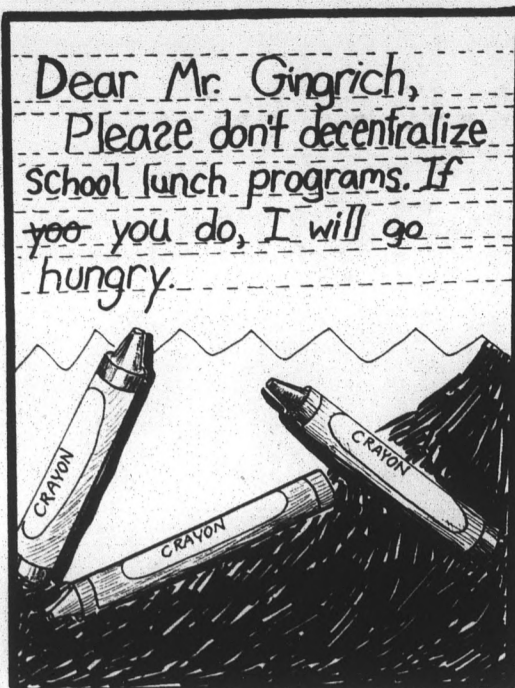 Dear Mr. Gingrich,
Please don't decentralize
school lunch programs. If
yoo you do, I will go
hungry.
CRAYON
CRAYON
CRAYON